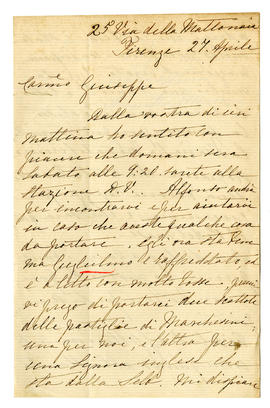 25 Via della Mattonaia
Firenze 27. Aprile
Carmo Giuseppe
Dalla vostra di ieri
mattina ho sentito con
piacere che domani sera
sabato alle 9:20 sarete alla
stazione A.V.. Alfonso andrà
per incontrarvi e per aiutarvi
in caso che avete qualche cosa
da portare. Egli ora sta bene
ma Guglielmo è raffreddato ed
è a letto con molta tosse.
vi prego di portarci due scattole
delle pastiglie di Marchesini;
una per noi, e l'altra per
una Signora inglese che
sta della Seb. Mi dispiace